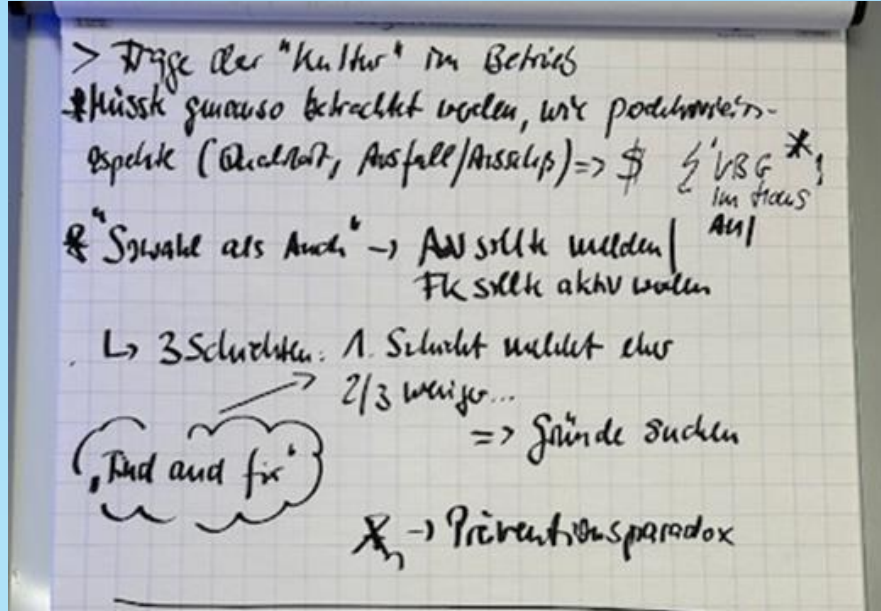 > Frage der "Kultur" im Betrieb
* Müsste genauso betrachtet werden, wie
aspekte (Qualität, Ausfall/Ausschuß) => $ VBG *
im Haus
AU
* "Sowohl als Auch" -> AN sollte melden |
FK sollte aktiv werden
↳ 3 Schichten: 1. Schicht meldet eher
2/3 weniger...
=> Gründe suchen
"Find and fix"
* -> Präventionsparadox